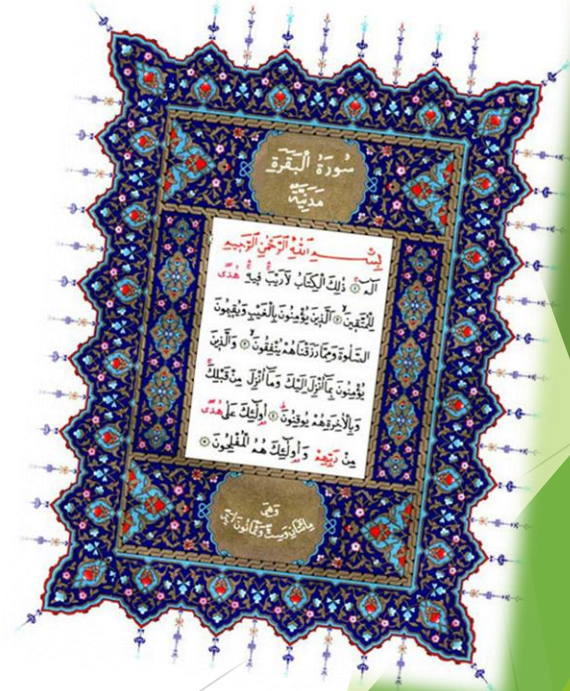 سُورَةُ الْبَقَرَةِ
مَدَنِيَّةٌ
بِسْمِ اللّٰهِ الرَّحْمٰنِ الرَّحِيمِ
الٓمٓ ۝ ذٰلِكَ الْكِتَابُ لَا رَيْبَ فِيهِ هُدًى
لِلْمُتَّقِينَ ۝ الَّذِينَ يُؤْمِنُونَ بِالْغَيْبِ وَيُقِيمُونَ
الصَّلٰوةَ وَمِمَّا رَزَقْنَاهُمْ يُنْفِقُونَ ۝ وَالَّذِينَ
يُؤْمِنُونَ بِمَا أُنْزِلَ إِلَيْكَ وَمَا أُنْزِلَ مِنْ قَبْلِكَ
وَبِالْاٰخِرَةِ هُمْ يُوقِنُونَ ۝ أُولٰئِكَ عَلٰى هُدًى
مِنْ رَبِّهِمْ وَأُولٰئِكَ هُمُ الْمُفْلِحُونَ ۝
وَهِيَ
مِائَتَانِ وَسِتٌّ وَثَمَانُونَ آيَةً